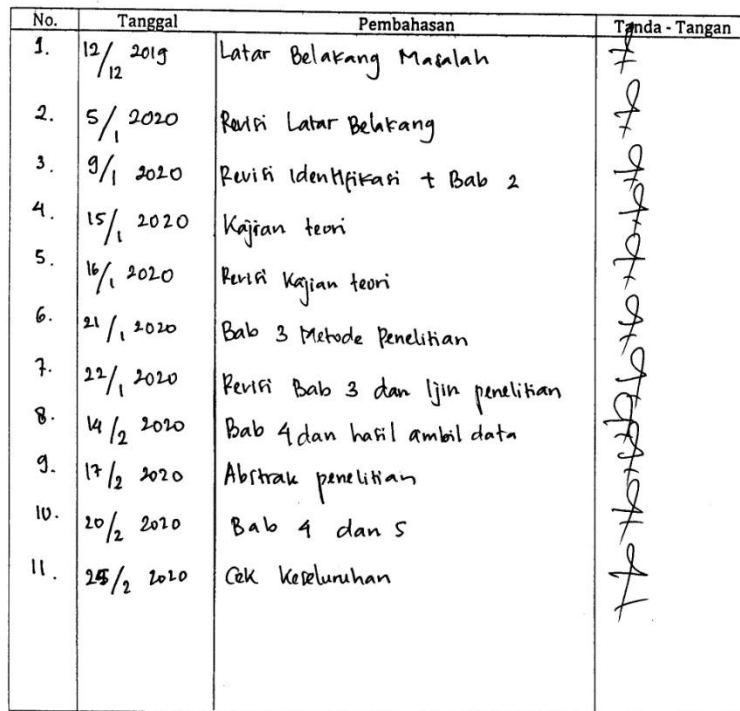 No. Tanggal Pembahasan Tanda - Tangan
1. 12/12 2019 Latar Belakang Masalah
2. 5/1 2020 Revisi Latar Belakang
3. 9/1 2020 Revisi Identifikasi + Bab 2
4. 15/1 2020 Kajian teori
5. 16/1 2020 Revisi Kajian teori
6. 21/1 2020 Bab 3 Metode Penelitian
7. 22/1 2020 Revisi Bab 3 dan Ijin penelitian
8. 14/2 2020 Bab 4 dan hasil ambil data
9. 17/2 2020 Abstrak penelitian
10. 20/2 2020 Bab 4 dan 5
11. 25/2 2020 Cek Keseluruhan